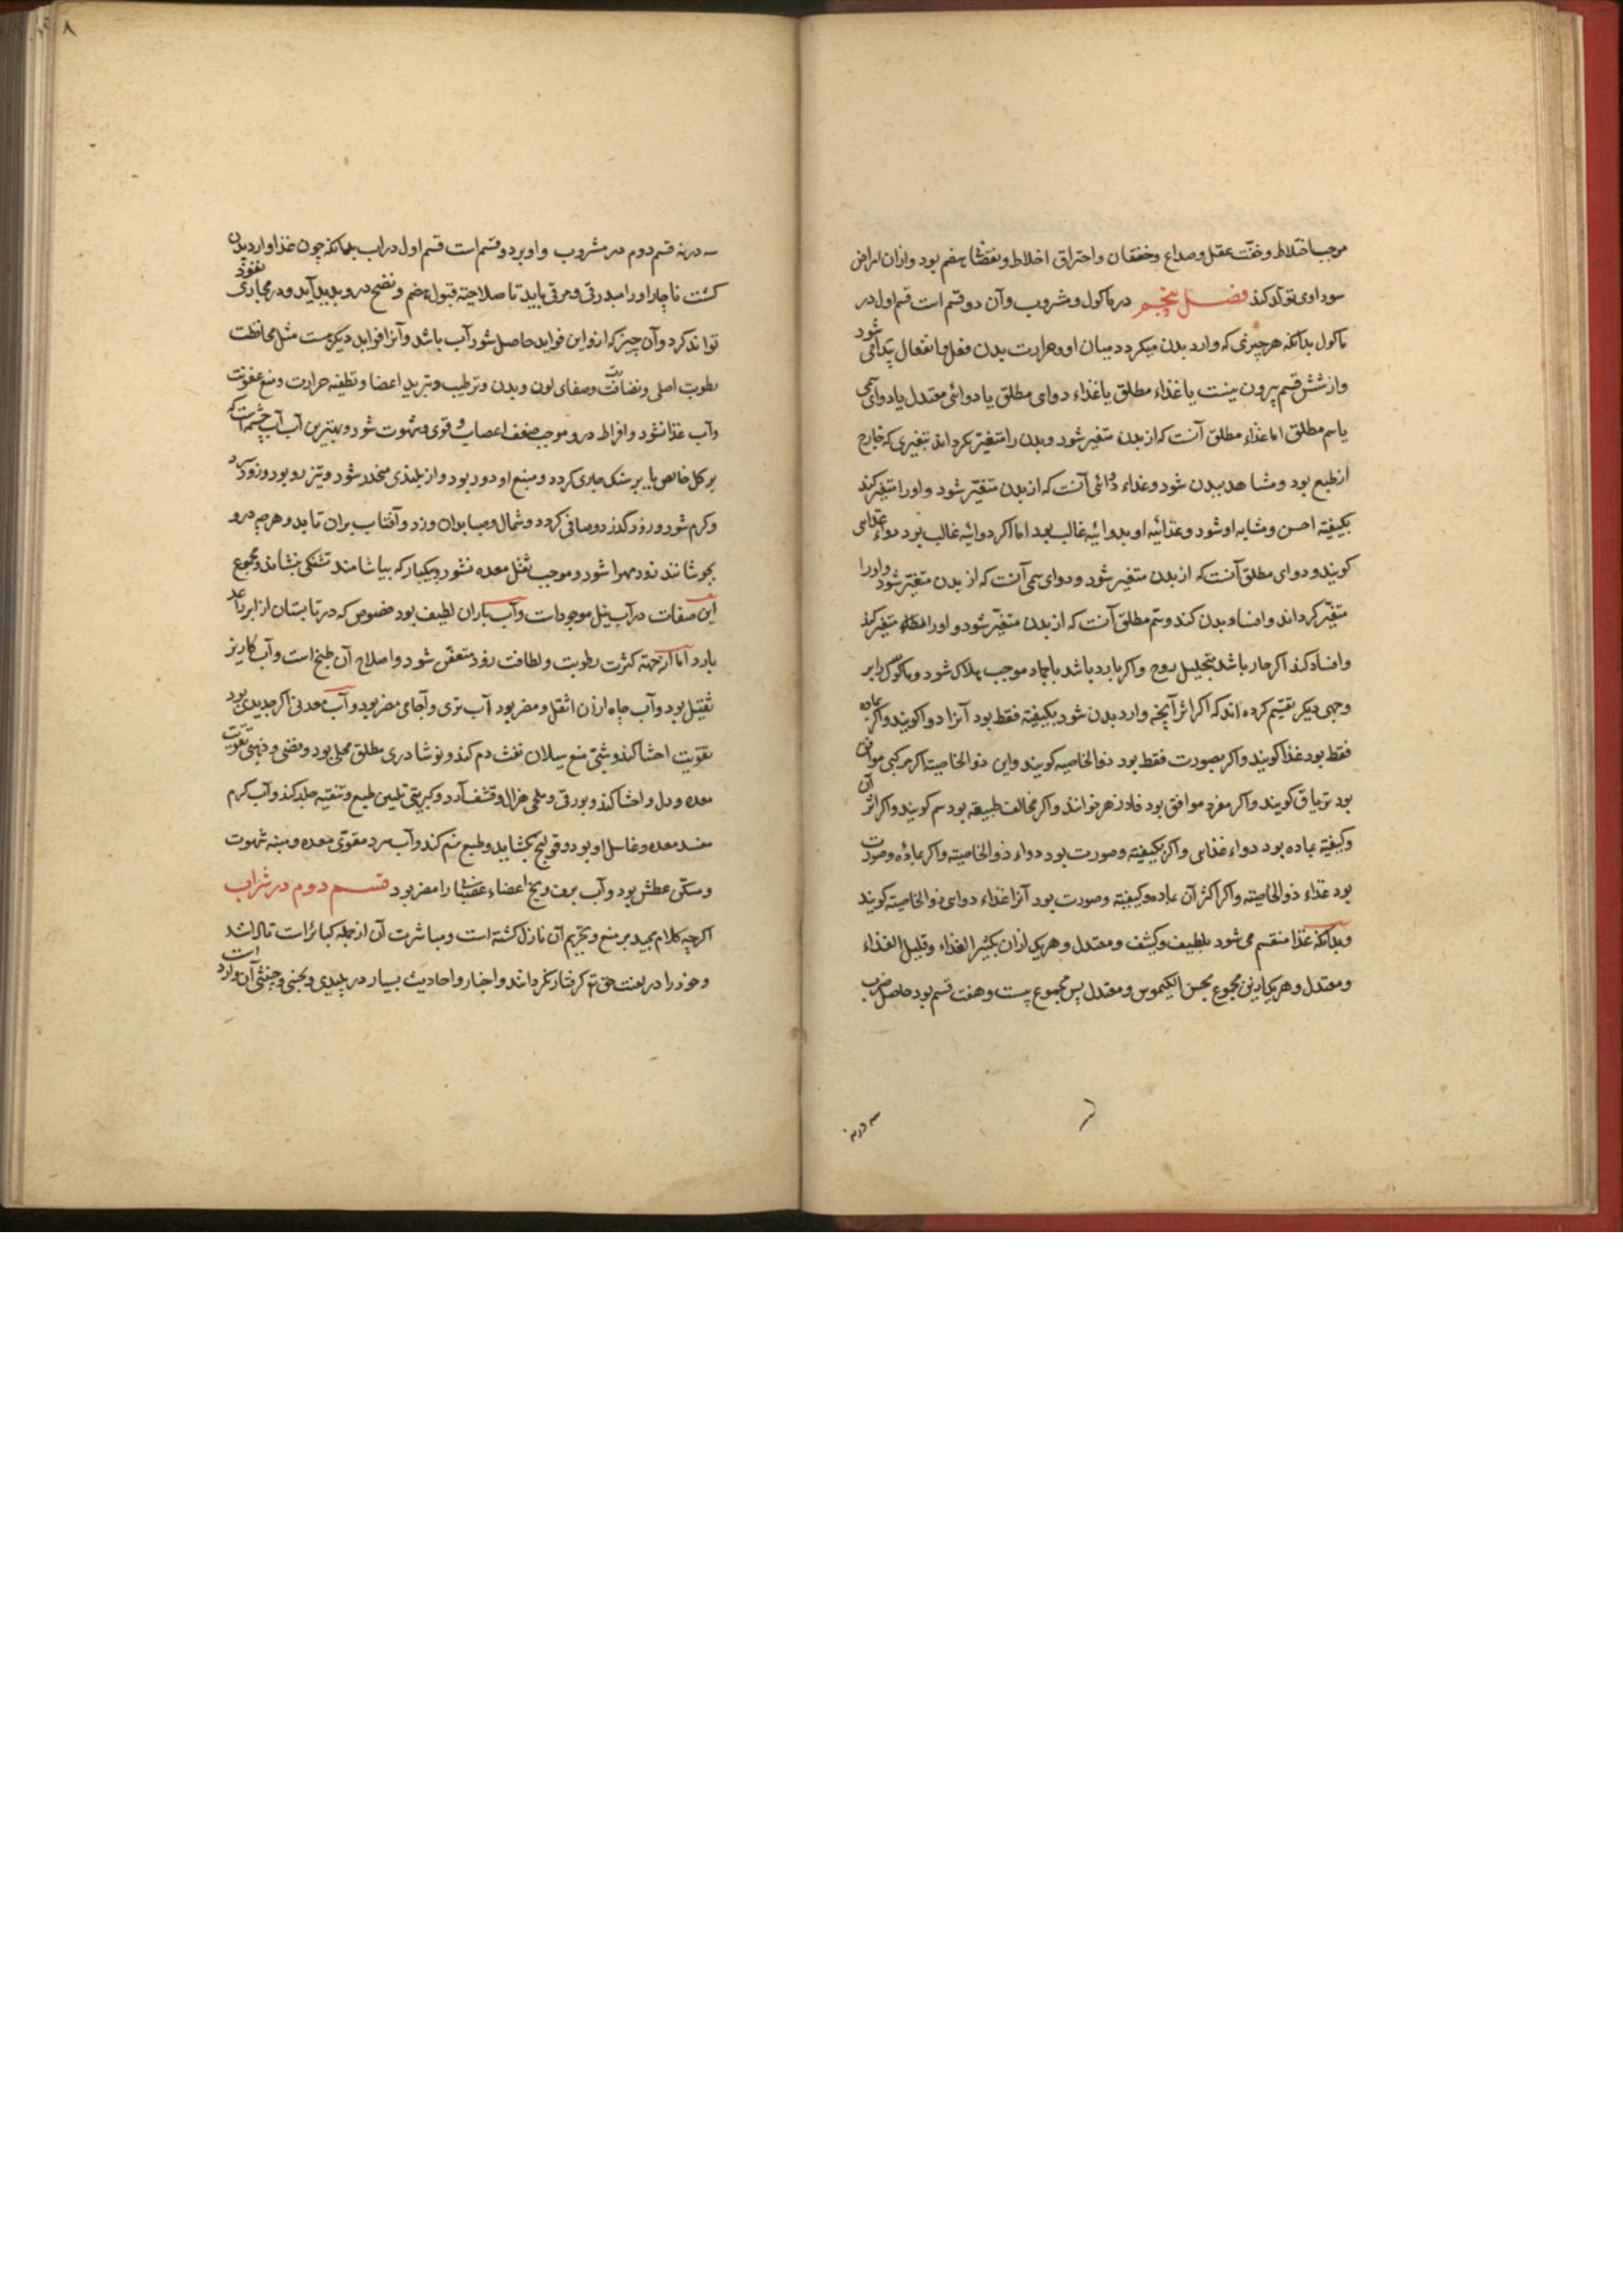 موجب اختلاط و خفّت عقل و صداع و خفقان و احتراق اخلاط و نقصان هضم بود و ازان امراض
سوداوی تولّد کند فصل پنجم در ماکول و مشروب و آن دو قسم است قسم اول در
ماکول بدانکه هر چیزی که وارد بدن میکردد میان او و حرارت بدن فعل و انفعال پیدا می شود
و از شش قسم بیرون نیست یا غذاء مطلق یا غذاء دوای مطلق یا دوائی معتدل یا دوای سمی
یا سم مطلق اما غذاء مطلق آنست که از بدن متغیر شود و بدن را متغیّر نکرداند تغیری که خارج
از طبع بود و مشابه بدن شود و غذاء دوائی آنست که از بدن متغیّر شود و او را متغیّر کند
بکیفیته احسن و مشابه او شود و غذائیه او بدوائیه غالب بود اما اکر دوائیه غالب بود دواء غذای
کویند و دوای مطلق آنست که از بدن متغیر شود و دوای سمی آنست که از بدن متغیّر شود و او را
متغیّر کرداند و افساد بدن کند و سّم مطلق آنست که از بدن متغیّر شود و او را متغیر کند
و افساد کند اکر حار باشد بتحلیل روح و اکر بارد باشد باجماد موجب هلاک شود و ماکول را بر
وجهی دیکر تقسیم کرده اند که اکر اثر آنچه وارد بدن شود بکیفیته فقط بود آنرا دوا کویند و اکر بماده
فقط بود غذا کویند و اکر بصورت فقط بود ذوالخاصیه کویند و این ذوالخاصیته اکر مرکبی موافق
بود تریاق کویند و اکر مفرد موافق بود فادزهر خوانند و اکر مخالف طبیعه بود سم کویند و اکر اثر آن
وکیفیّه بماده بود دواء غذای و اکر بکیفیته و صورت بود دواء ذوالخاصیته و اکر بمادّه و صورت
بود غذاء ذوالخاصیته و اکر اکثر آن بماده و کیفیته و صورت بود آنرا غذاء دوای ذوالخاصیته کویند
و بدانکه غذا منقسم می شود بلطیف و کثیف و معتدل و هریک ازان بکثیر الغذاء و قلیل الغذاء
و معتدل و هریک ازین مجموع بحسن الکیموس و معتدل پس مجموع بیست و هفت قسم بود حاصل ضرب
سه در نه
۸
سه در نه قسم دوم در مشروب و او بر دو قسم است قسم اول در اب بدانکه چون غذا وارد بدن
کشت ناچار او را مبدرقی و مرقی باید تا صلاحیته قبول هضم و نضج در و پدید آید و در مجاری نفوذ
تواند کرد و آن چیز که ازو این فواید حاصل شود آب باشد و آنرا فواید دیکر هست مثل محافظت
رطوبت اصلی و نضافت و صفای لون و بدن و ترطیب و تبرید اعضا و تطفیه حرارت و منع عفونت
و آب غذا نشود و افراط در و موجب ضعف اعصاب و قوی و شهوت شود و بهترین آب آب چشمه است که
بر کل خالص یا بر سنک جاری کردد و منبع او دور بود و از بلندی منحدر شود و تیز رو بود و زود سرد
و کرم شود و زود کذرد و صافی کردد و شمال و صبا بدان وزد و آفتاب بران تابد و هرچه درو
بجوشانند زود مهرا شود و موجب ثقل معده نشود و یکبار که بیاشامند تشنکی بنشاند و مجموع
این صفات در آب نیل موجودات و آب باران لطیف بود مخصوص که در تابستان از ابر راعد
بارد اما از جهته کثرت رطوبت و لطافت زود متعفن شود و اصلاح آن طبخ است و آب کاریز
ثقیل بود و آب چاه ازان اثقل و مضر بود آب نزی و آجامی مضر بود و آب معدنی اکر حدیدی بود
تقویت احشا کند و شبّی منع سیلان نفث دم کند و نوشادری مطلق محلل بود و فضی و ذهبی تقویت
معده و دل و احشا کند و بورقی و ملحی هزال و قشف آرد و کبریتی تلیین طبع و تنقیه جلد کند و آب کرم
مفسد معده و غاسل او بود و قولنج بکشاید و طبع نرم کند و آب سرد مقوّی معده و منبه شهوت
و مسکّن عطش بود و آب برف و یخ اعضاء عصبانی را مضر بود قسم دوم در شراب
اکرچه کلام مجید بر منع و تحریم آن نازل کشته است و مباشرت آن از جمله کبائر است
و خود را در لعنت حق کرفتار نکردانند و اخبار و احادیث بسیار در پلیدی و نجسی و خبثی آن وارد است